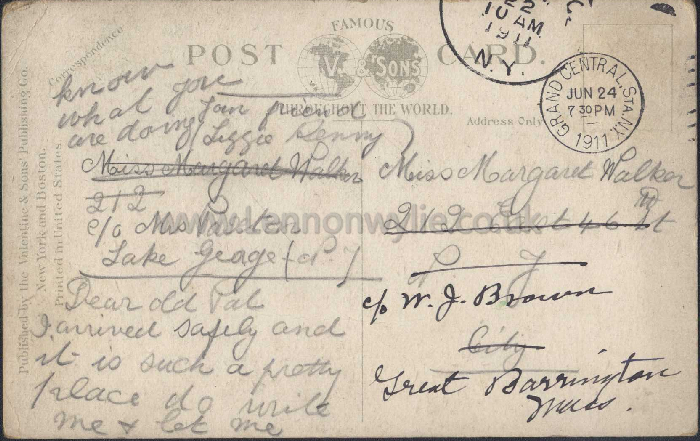 FAMOUS
POST CARD.
V. & SONS
THROUGHOUT THE WORLD.
Correspondence
Address Only
Published by the Valentine & Sons' Publishing Co.
New York and Boston.
Printed in United States.
22
10 AM
1911
N.Y.
GRAND CENTRAL STA. N.Y.
JUN 24
7 30 PM
1911
know you
what you
are doing
friend
Lizzie
Miss Margaret Walker
212
c/o Mrs
Lake George
Dear old Pal
I arrived safely and
it is such a pretty
place do write
me & let me
Miss Margaret Walker
212 East 46 St
c/o W. J. Brown
City
Great Barrington
Mass.
www.lennonwylie.co.uk